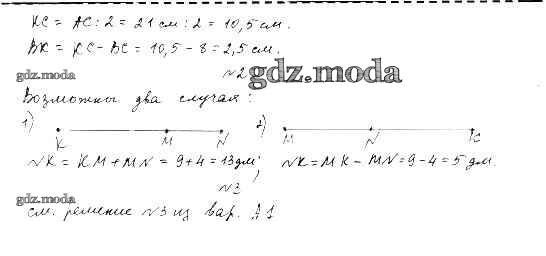 КС = АС : 2 = 21 см : 2 = 10,5 см.
ВК = КС - ВС = 10,5 - 8 = 2,5 см.
gdz.moda
№2
gdz.moda
Возможны два случая:
1)
K M N
2)
M N K
NK = KM + MN = 9 + 4 = 13 дм;
NK = MK - MN = 9 - 4 = 5 дм.
№3
gdz.moda
см. решение №3 из вар. А1